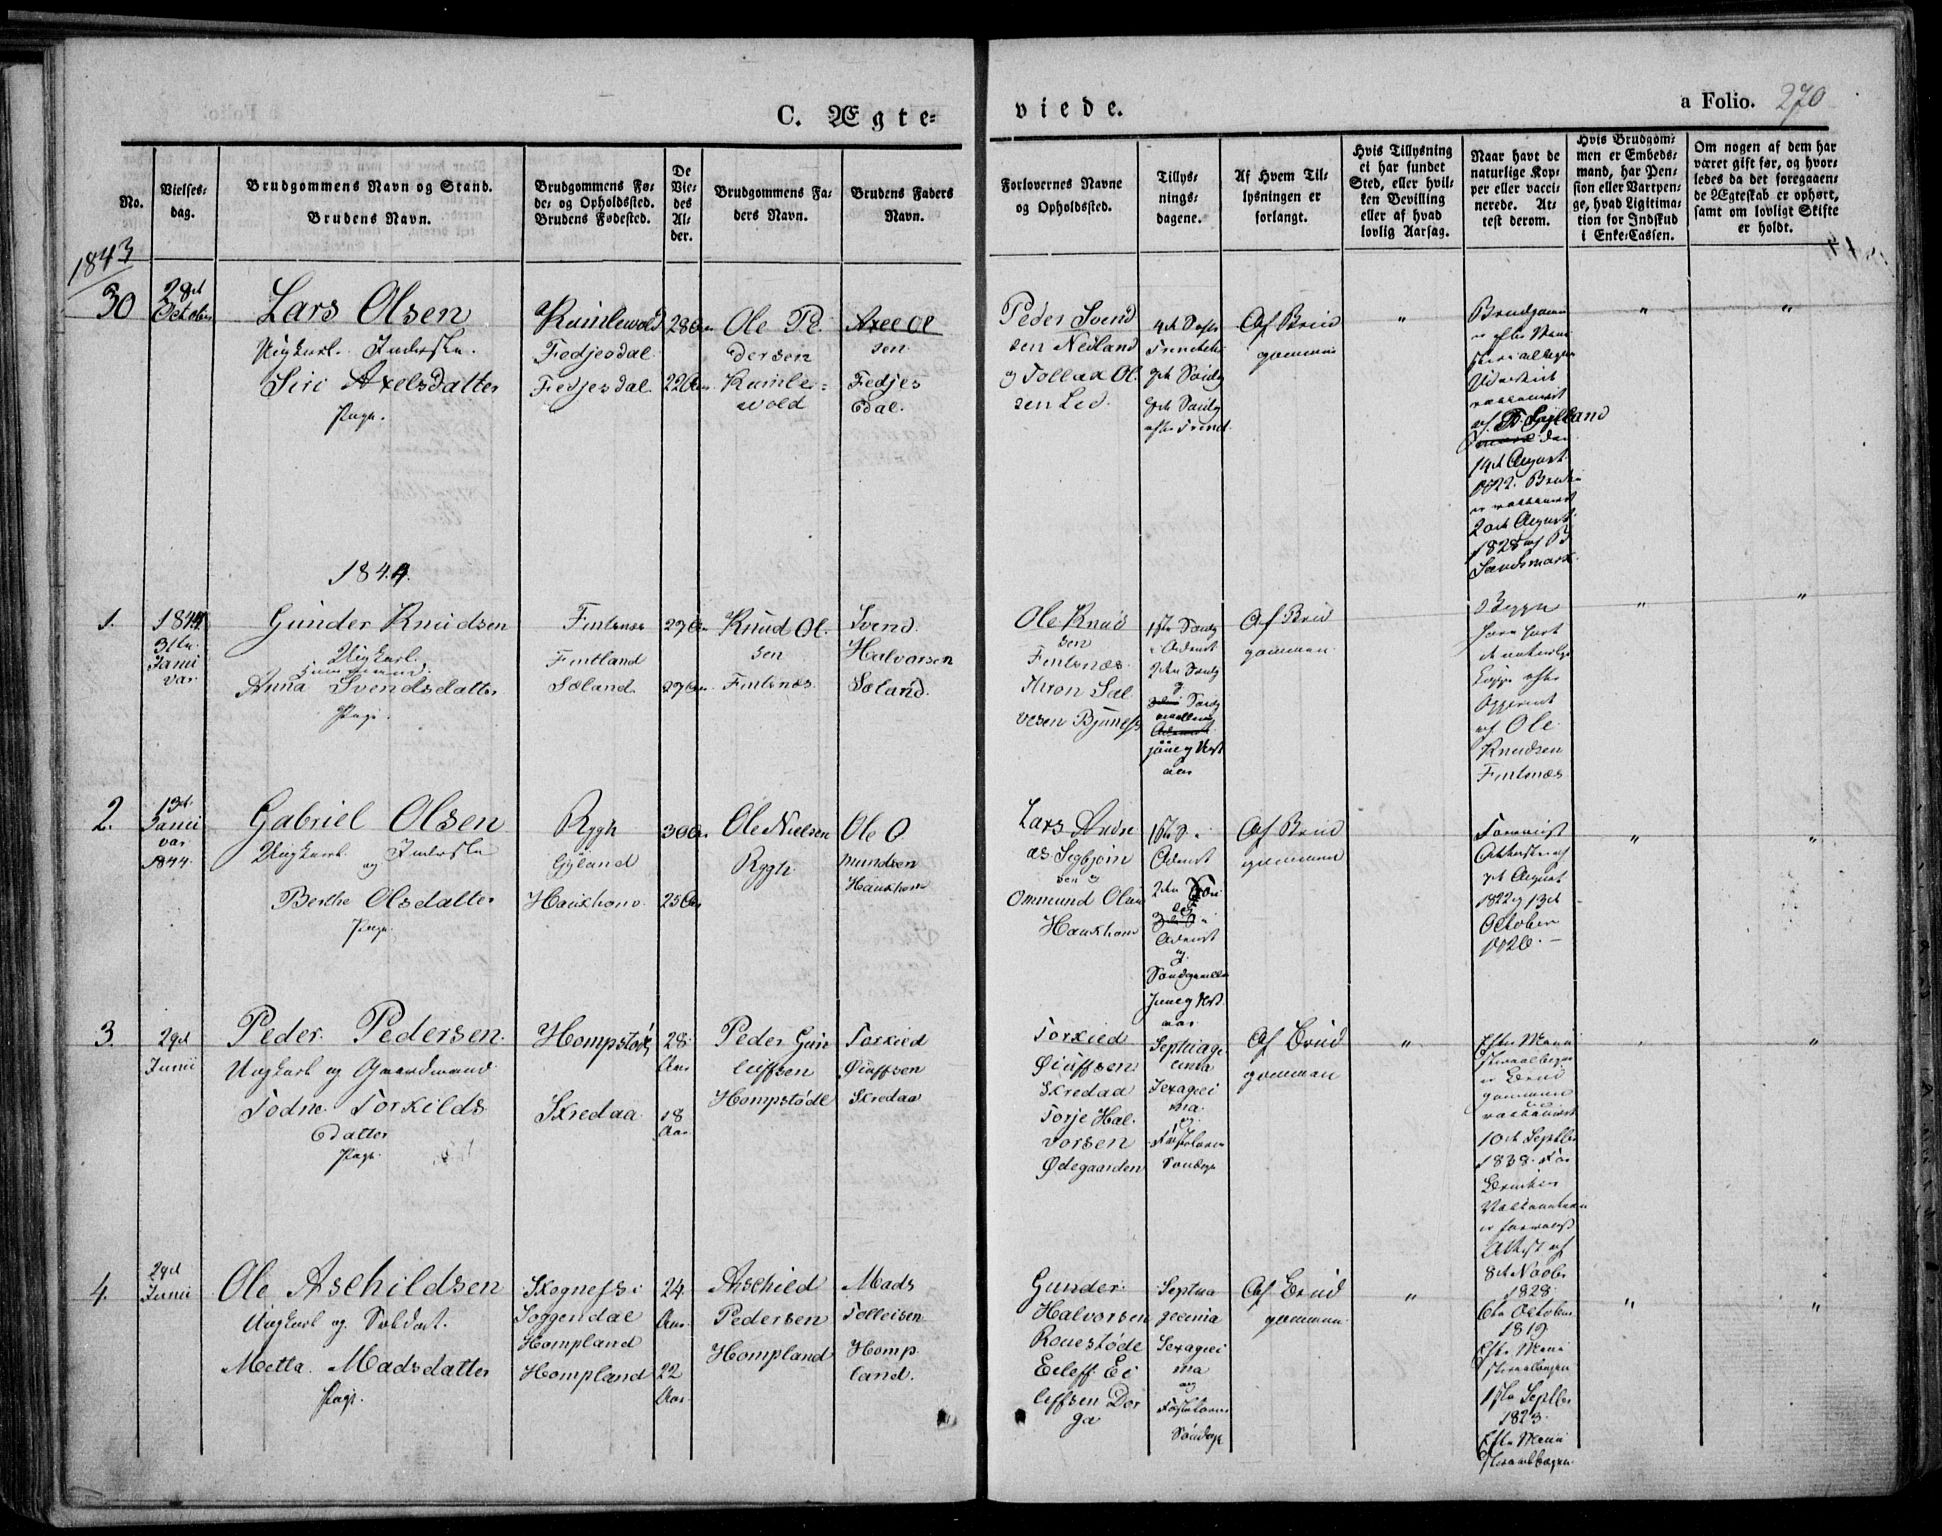 C. Ægte=
viede.
a Folio. 270
No.
Vielses=
dag.
Brudgommens Navn og Stand.
Brudens Navn.
Brudgommens Fø=
de= og Opholdssted.
Brudens Fødested.
De
Vie=
des
Al=
der.
Brudgommens Fa=
ders Navn.
Brudens Faders
Navn.
Forlovernes Navne
og Opholdssted.
Tillys=
nings=
dagene.
Af Hvem Til=
lysningen er
forlangt.
Hvis Tillysning
ei har fundet
Sted, eller hvil=
ken Bevilling
eller af hvad
lovlig Aarsag.
Naar havt de
naturlige Kop=
per eller vacci=
nerede. At=
test derom.
Hvis Brudgom=
men er Embeds=
mand, har Pen=
sion eller Vartpen=
ge, hvad Ligitima=
tion for Indskud
i Enke=Cassen.
Om nogen af dem har
været gift før, og hvor=
ledes da det foregaaen=
de Ægteskab er ophørt,
samt om lovligt Skifte
er holdt.
1843
30
28de
October
Lars Olsen
Ungkarl. Inderste.
Siri Axelsdatter
Pige.
Ramlewold
Fedjesdal
Fedjesdal
28 Aar
22 Aar
Ole Pe
dersen
Ramle=
wold
Axel Ol
sen
Fedjes
dal.
Peder Svend
sen Neiland
og Tollak Ol.
sen Led.
Af Brud
gommen
14de August
1822. Bruden
er vaccineret
20de August
1828 af P
Sandsmark
1844.
1.
1844
31te
Janu
var
Gunder Knudsen
Ungkarl.
Anna Svendsdatter
Pige.
Fintnæs
Fintland
Søland
27 Aar
27 Aar
Knud Ol.
sen
Fintnæs.
Svend.
Halvorsen
Søland.
Ole Knud
sen
Fintnæs.
Af Brud
gommen.
Begge
have havt
de naturlige
Kopper efter
Opgivent
af Ole
Knudsen
Fintnæs
2.
13de
Janu
var
1844
Gabriel Olsen
Ungkarl og Inderste
Berthe Olsdatter
Pige.
Rygh
Gyland
Haukhom
30 Aar
25 Aar
Ole Nielsen
Rygh
Ole O
mundsen
Haukhom
Lars Andre
as Segbjørn
sen og
Ommund Olsen
Haukhom
Af Brud
gommen
Foreviist
Attester af
7de August
1822 og 13de
October
1826.
3.
29de
Junii
Peder Pedersen
Ungkarl og Gaardmand
Todne Torkilds
datter
Pige.
Hompstøl
Skredaa
28
Aar
18
Aar
Peder Gun
leifsen
Hompstøl
Torkild
Øiufsen
Skredaa
Torkild
Øiufsen
Skredaa
Torje Hal.
vorsen
Ødegaarden
Septuage
sima
Sexagesi
ma
og
Fastelavns
Søndage
Af Brud
gommen
Efter Mini
sterialbogen
er Brud
gommen
vaccineret
10de Septbr
1838. For
Bruden
Vaccination
er foreviist
Attest af
8de Novbr
1828
4.
29de
Junii
Ole Aschildsen
Ungkarl og Soldat.
Metta Madsdatter
Pige.
Skognefs i
Soggendal
Hompland
Hompland
24.
Aar.
22
Aar.
Aschild
Pedersen
Hompland
Mads
Tolleisen
Homp
land.
Gunder
Halvorsen
Rouestøde
Eilef Ei
lefsen Dor
ga
Septua
gesima
Sexagesi
ma
og
Fastelavns
Søndage
Af Brud
gommen
6te October
1819
Efter Mini
sterialbogen
1ste Septbr
1823.
Efter Mini
sterialbogen.